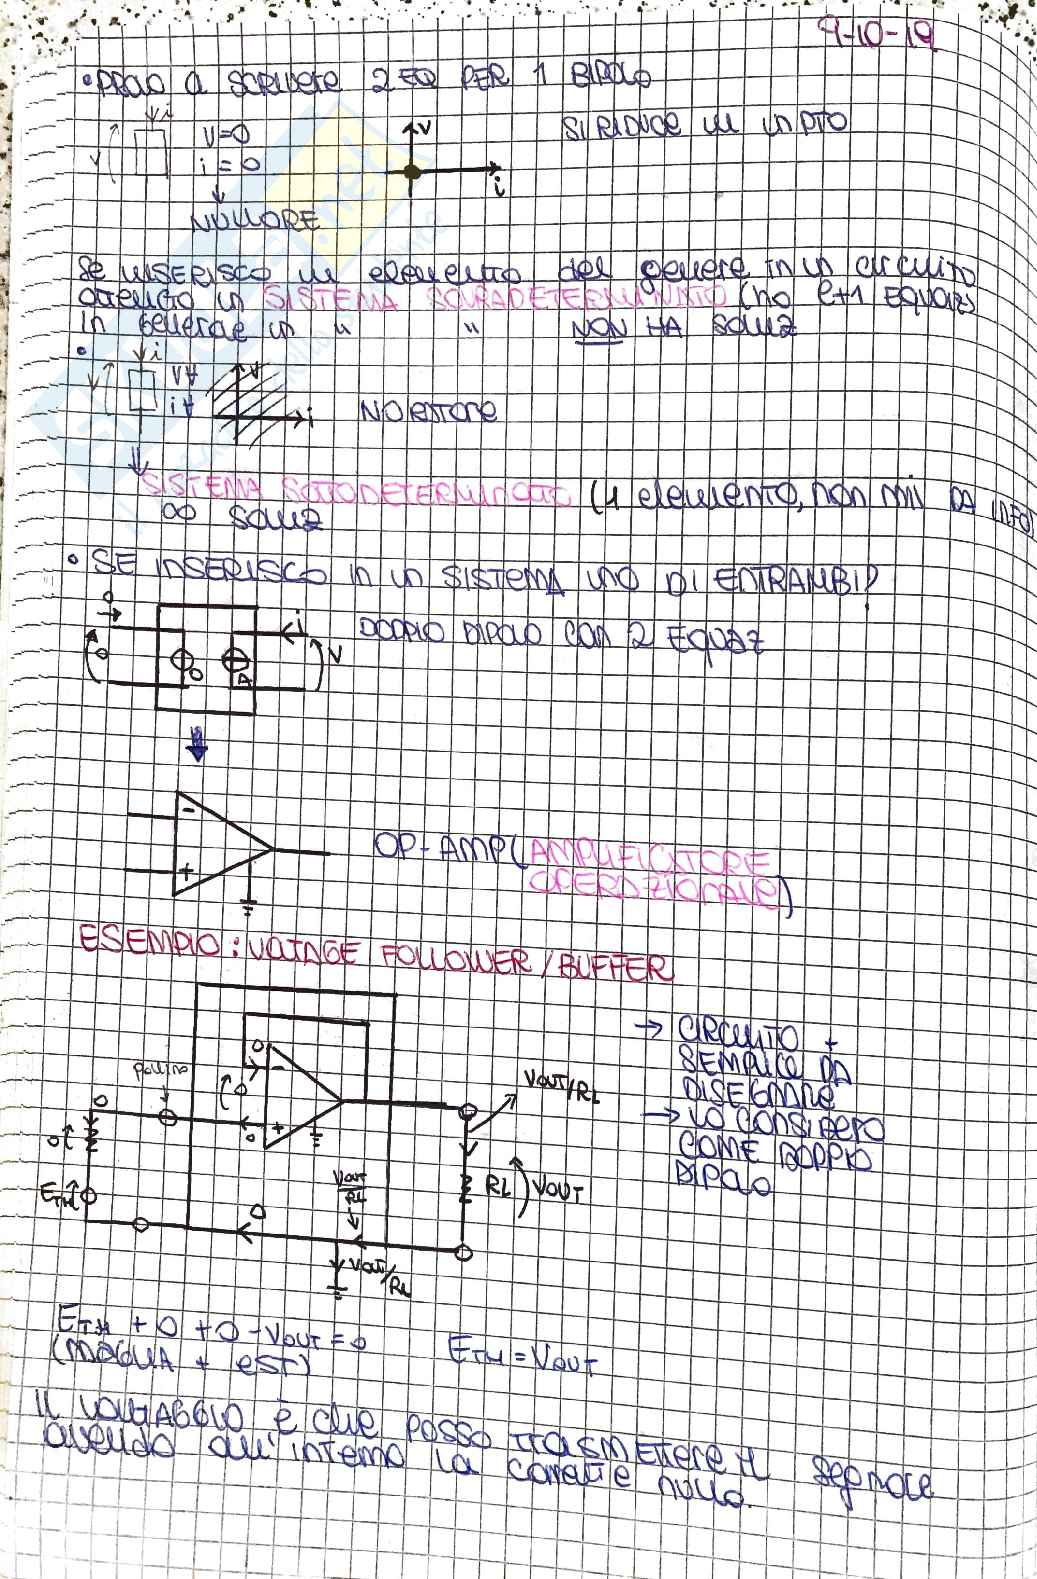 9-10-19
• PROVO A SCRIVERE 2 EQ PER 1 BIPOLO
i
v
V=0
i=0
NULLORE
v
i
SI RIDUCE IN UN PTO
SE INSERISCO UN elemento del genere in un circuito
ottengo un SISTEMA SOVRADETERMINATO (ho l+1 EQUAZ)
In generale un " " NON HA SOLUZ
•
i
v
V∀
i∀
v
i
NORATORE
SISTEMA SOTTODETERMINATO (1 elemento, non mi DA INFO)
∞ SOLUZ
• SE INSERISCO IN UN SISTEMA UNO DI ENTRAMBI?
0
0
0
A
i
v
DOPPIO BIPOLO CON 2 EQUAZ
-
+
OP-AMP (AMPLIFICATORE
OPERAZIONALE)
ESEMPIO: VOLTAGE FOLLOWER/BUFFER
→ CIRCUITO +
SEMPLICE DA
DISEGNARE
→ LO CONSIDERO
COME DOPPIO
BIPOLO
pallino
0
-
0
+
0
0
0
ETH
0
VOUT/RL
VOUT/RL
VOUT/RL
RL
VOUT
ETH + 0 + 0 - VOUT = 0
(MAGLIA + EST)
ETH = VOUT
Il VANTAGGIO è che posso TRASMETTERE IL segnale
avendo all'interno la corrente nulla.